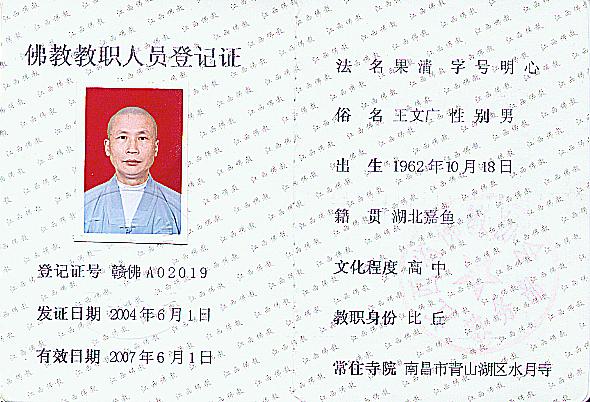 佛教教职人员登记证
登记证号 赣佛A02019
发证日期 2004年6月1日
有效日期 2007年6月1日
法 名 果清 字号 明心
俗 名 王文广 性别 男
出 生 1962年10月18日
籍 贯 湖北嘉鱼
文化程度 高中
教职身份 比丘
常住寺院 南昌市青山湖区水月寺
江西佛教